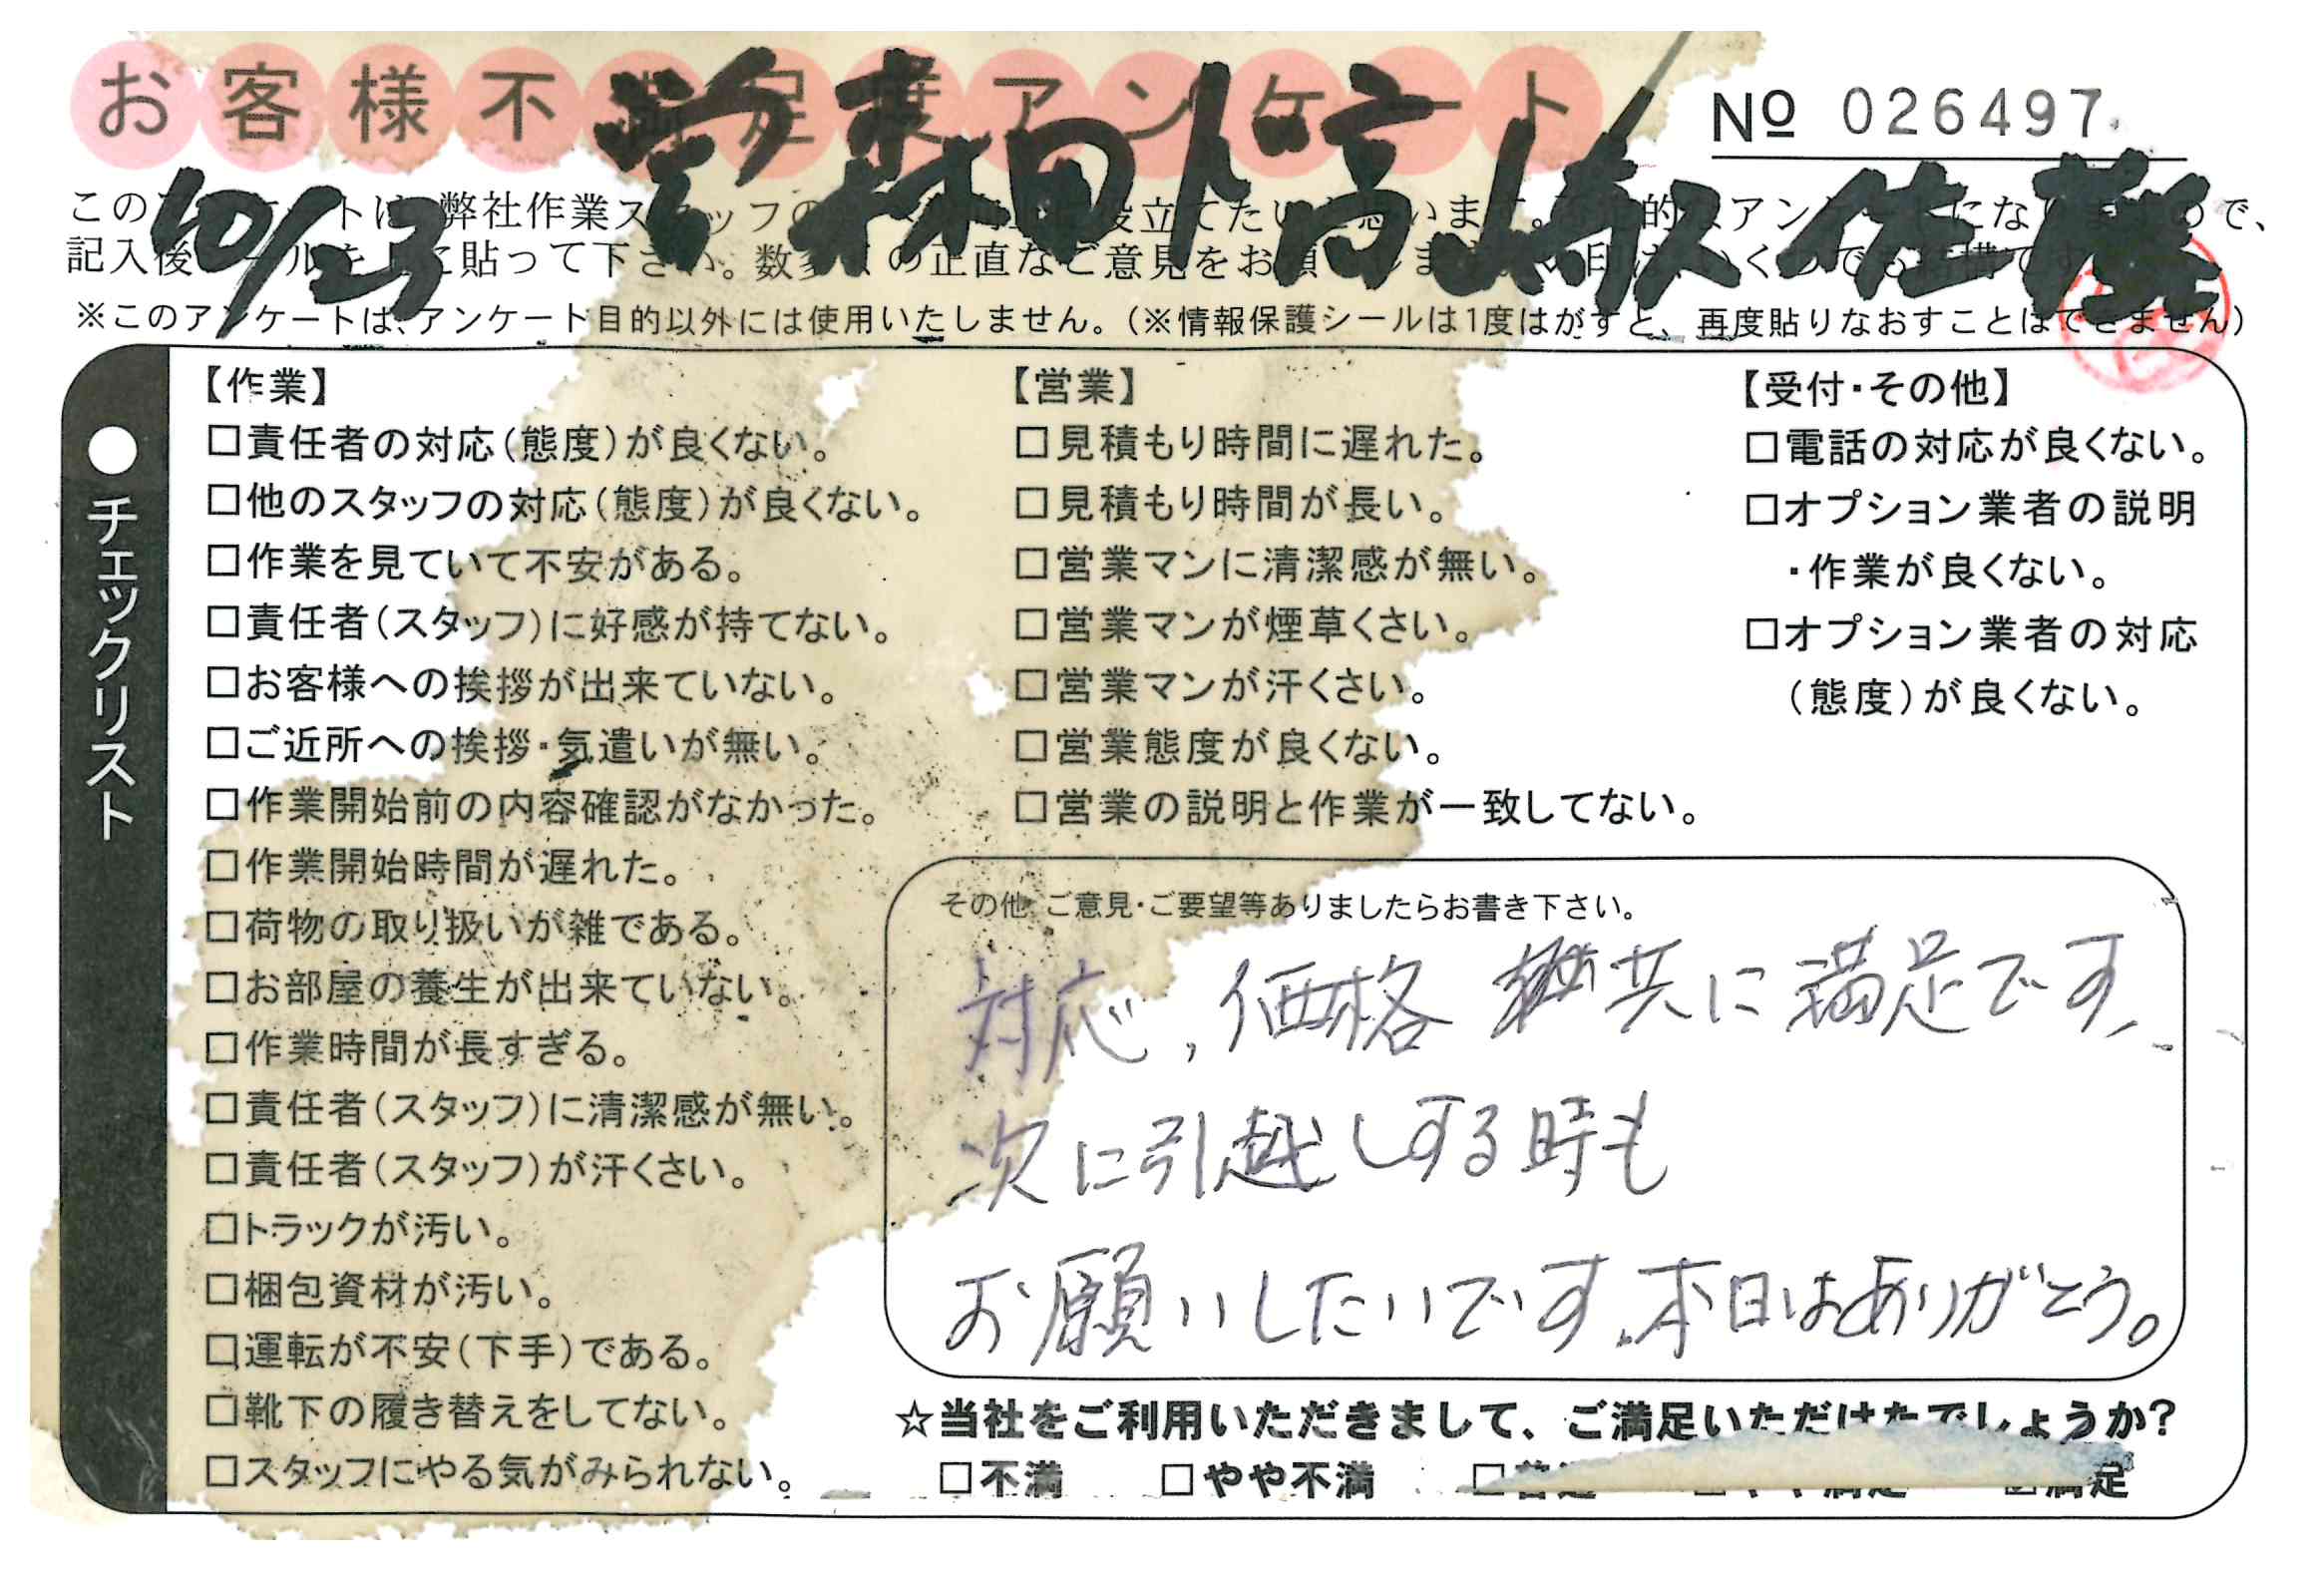 お客様不満足度アンケート
No 026497
10/23
弊社作業ス
記入後 貼って下さい。数 の正直なご意見をお
※このアンケートは、アンケート目的以外には使用いたしません。(※情報保護シールは1度はがすと、再度貼りなおすことはできません)
●チェックリスト
【作業】
□責任者の対応(態度)が良くない。
□他のスタッフの対応(態度)が良くない。
□作業を見ていて不安がある。
□責任者(スタッフ)に好感が持てない。
□お客様への挨拶が出来ていない。
□ご近所への挨拶・気遣いが無い。
□作業開始前の内容確認がなかった。
□作業開始時間が遅れた。
□荷物の取り扱いが雑である。
□お部屋の養生が出来ていない。
□作業時間が長すぎる。
□責任者(スタッフ)に清潔感が無い。
□責任者(スタッフ)が汗くさい。
□トラックが汚い。
□梱包資材が汚い。
□運転が不安(下手)である。
□靴下の履き替えをしてない。
□スタッフにやる気がみられない。
【営業】
□見積もり時間に遅れた。
□見積もり時間が長い。
□営業マンに清潔感が無い。
□営業マンが煙草くさい。
□営業マンが汗くさい。
□営業態度が良くない。
□営業の説明と作業が一致してない。
【受付・その他】
□電話の対応が良くない。
□オプション業者の説明
・作業が良くない。
□オプション業者の対応
(態度)が良くない。
その他 ご意見・ご要望等ありましたらお書き下さい。
対応、価格 共に満足です、
次に引越しする時も
お願いしたいです、本日はありがとう。
☆当社をご利用いただきまして、ご満足いただけたでしょうか?
□不満 □やや不満 □普通 □やや満足 ☑満足